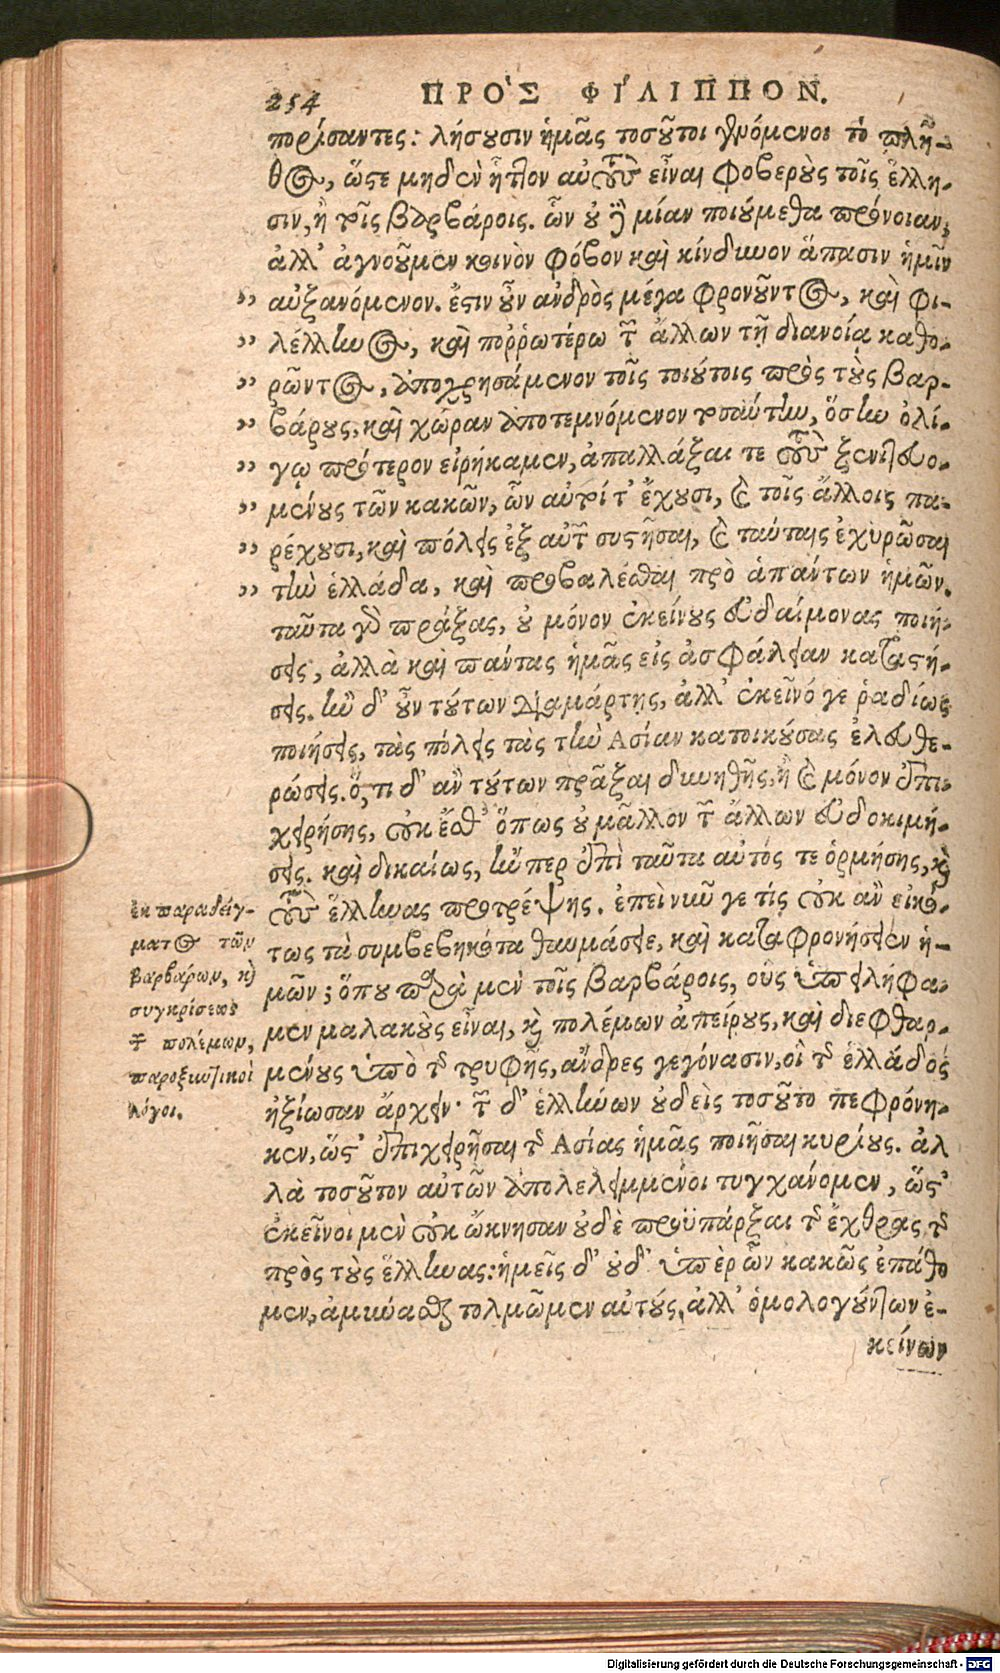 254 ΠΡΟ'Σ ΦΙ'ΛΙΠΠΟΝ.
πορίσαντες: λήσουσιν ἡμᾶς τοσοῦτοι γενόμενοι τὸ πλῆ-
θος, ὥστε μηδὲν ἧττον αὐτοὺς εἶναι φοβεροὺς τοῖς ἕλλη-
σιν, ἢ τοῖς βαρβάροις. ὧν οὐδεμίαν ποιούμεθα πρόνοιαν,
ἀλλ' ἀγνοοῦμεν κοινὸν φόβον καὶ κίνδυνον ἅπασιν ἡμῖν
,, αὐξανόμενον. ἔστιν οὖν ἀνδρὸς μέγα φρονοῦντος, καὶ φι-
,, λέλληνος, καὶ ποῤῥωτέρω τῶν ἄλλων τῇ διανοίᾳ καθο-
,, ρῶντος, ἀποχρησάμενον τοῖς τοιούτοις πρὸς τοὺς βαρ-
,, βάρους, καὶ χώραν ἀποτεμνόμενον τοσαύτην, ὅσην ὀλί-
,, γῳ πρότερον εἰρήκαμεν, ἀπαλλάξαι τε τοὺς ξενιτευο-
,, μένους τῶν κακῶν, ὧν αὐτοί τ' ἔχουσι, καὶ τοῖς ἄλλοις πα-
,, ρέχουσι, καὶ πόλεις ἐξ αὐτῶν συστῆσαι, καὶ ταύταις ἐχυρῶσαι
,, τὴν ἑλλάδα, καὶ προβαλέσθαι πρὸ ἁπάντων ἡμῶν.
ταῦτα γὰρ πράξας, οὐ μόνον ἐκείνους εὐδαίμονας ποιή-
σεις, ἀλλὰ καὶ πάντας ἡμᾶς εἰς ἀσφάλειαν καταστή-
σεις. ἢν δ' οὖν τούτων διαμάρτῃς, ἀλλ' ἐκεῖνό γε ῥαδίως
ποιήσεις, τὰς πόλεις τὰς τὴν Ἀσίαν κατοικούσας ἐλευθε-
ρώσεις. ὅ, τι δ' ἂν τούτων πρᾶξαι δυνηθῇς, ἢ καὶ μόνον ἐπι-
χειρήσῃς, οὐκ ἔσθ' ὅπως οὐ μᾶλλον τῶν ἄλλων εὐδοκιμή-
σεις. καὶ δικαίως, ἤνπερ ἐπὶ ταῦτα αὐτός τε ὁρμήσῃς, καὶ
τοὺς ἕλληνας προτρέψῃς. ἐπεὶ νῦν γε τίς οὐκ ἂν εἰκό-
τως τὰ συμβεβηκότα θαυμάσειε, καὶ καταφρονήσειεν ἡ-
μῶν; ὅπου παρὰ μὲν τοῖς βαρβάροις, οὓς ὑπειλήφα-
μεν μαλακοὺς εἶναι, καὶ πολέμων ἀπείρους, καὶ διεφθαρ-
μένους ὑπὸ τῆς τρυφῆς, ἄνδρες γεγόνασιν, οἳ τῆς ἑλλάδος
ἠξίωσαν ἄρχειν· τῶν δ' ἑλλήνων οὐδεὶς τοσοῦτο πεφρόνη-
κεν, ὥστ' ἐπιχειρῆσαι τῆς Ἀσίας ἡμᾶς ποιῆσαι κυρίους. ἀλ
λὰ τοσοῦτον αὐτῶν ἀπολελειμμένοι τυγχάνομεν, ὥστ'
ἐκεῖνοι μὲν οὐκ ὤκνησαν οὐδὲ προϋπάρξαι τῆς ἔχθρας τῆς
πρὸς τοὺς ἕλληνας: ἡμεῖς δ' οὐδ' ὑπὲρ ὧν κακῶς ἐπάθο
μεν, ἀμύνασθαι τολμῶμεν αὐτούς, ἀλλ' ὁμολογούντων ἐ-
κείνων
ἐκ παραδείγ-
ματος τῶν
βαρβάρων, καὶ
συγκρίσεως
τῶν πολέμων,
παροξυντικοὶ
λόγοι.
Digitalisierung gefördert durch die Deutsche Forschungsgemeinschaft - DFG